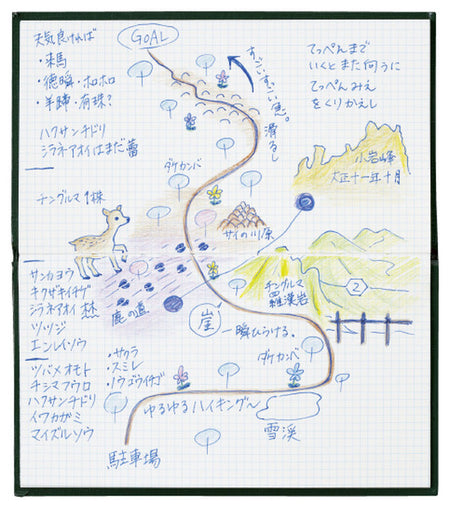 天気良ければ
・来馬
・徳瞬・ホロホロ
・羊蹄・有珠?
ハクサンチドリ
シラネアオイはまだ蕾
チングルマ1株
サンカヨウ
キクザキイチゲ
シラネアオイ
ツツジ
エンレイソウ
ツバメオモト
チシマフウロ
ハクサンチドリ
イワカガミ
マイズルソウ
GOAL
すごいすごい急。
滑るし
てっぺんまで
いくとまた向うに
てっぺんみえ
をくりかえし
小岩峰
大正十一年十月
ダケカンバ
サイの川原
チングルマ
四
羅漢岩
2
鹿の道
崖
一瞬ひらける。
ダケカンバ
・サクラ
・スミレ
・ノウゴウイチゴ
ゆるゆるハイキング〜
雪渓
駐車場